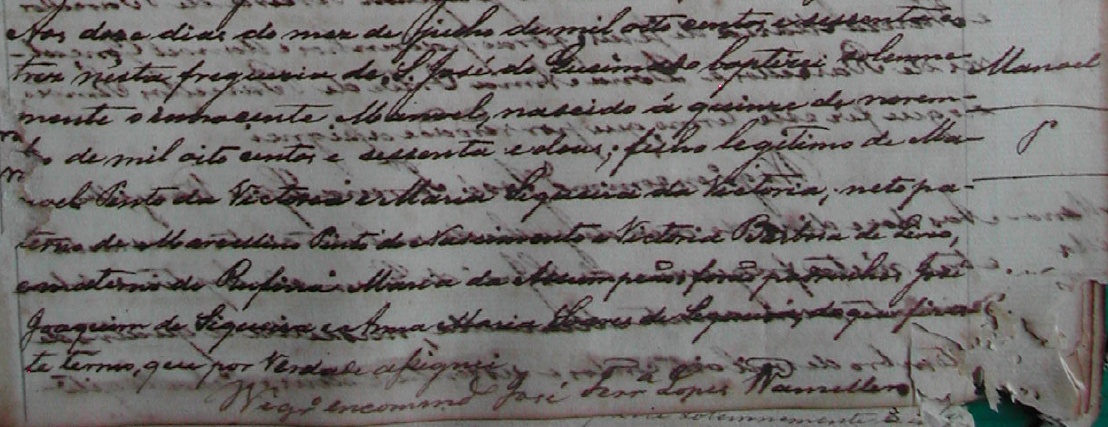 Aos doze dias do mez de Junho de mil oito centos e sessenta e
trez nésta freguezia de S. José do baptizei solemne-
Manoel
mente o innocente Manoel, nascido á quinze de novem-
bro de mil oito centos e sessenta e dous; filho legitimo de Ma-
noel Pinto da Victoria e Maria Siqueira da Victoria, neto pa-
terno de Marcellino Pinto do Nascimento e Victoria
e materno de Maria da Assumpção; forão padrinhos José
Joaquim de Siqueira e Anna Maria de Siqueira, do que fiz es-
te termo, que por verdade assignei
Vigr.o encommd.o José Ferr.a Lopes
solemnemente